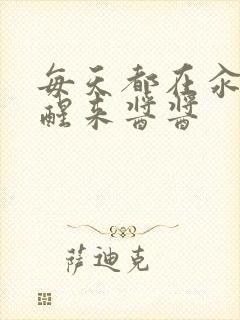 每天都在汆
醒来酱酱
萨迪克